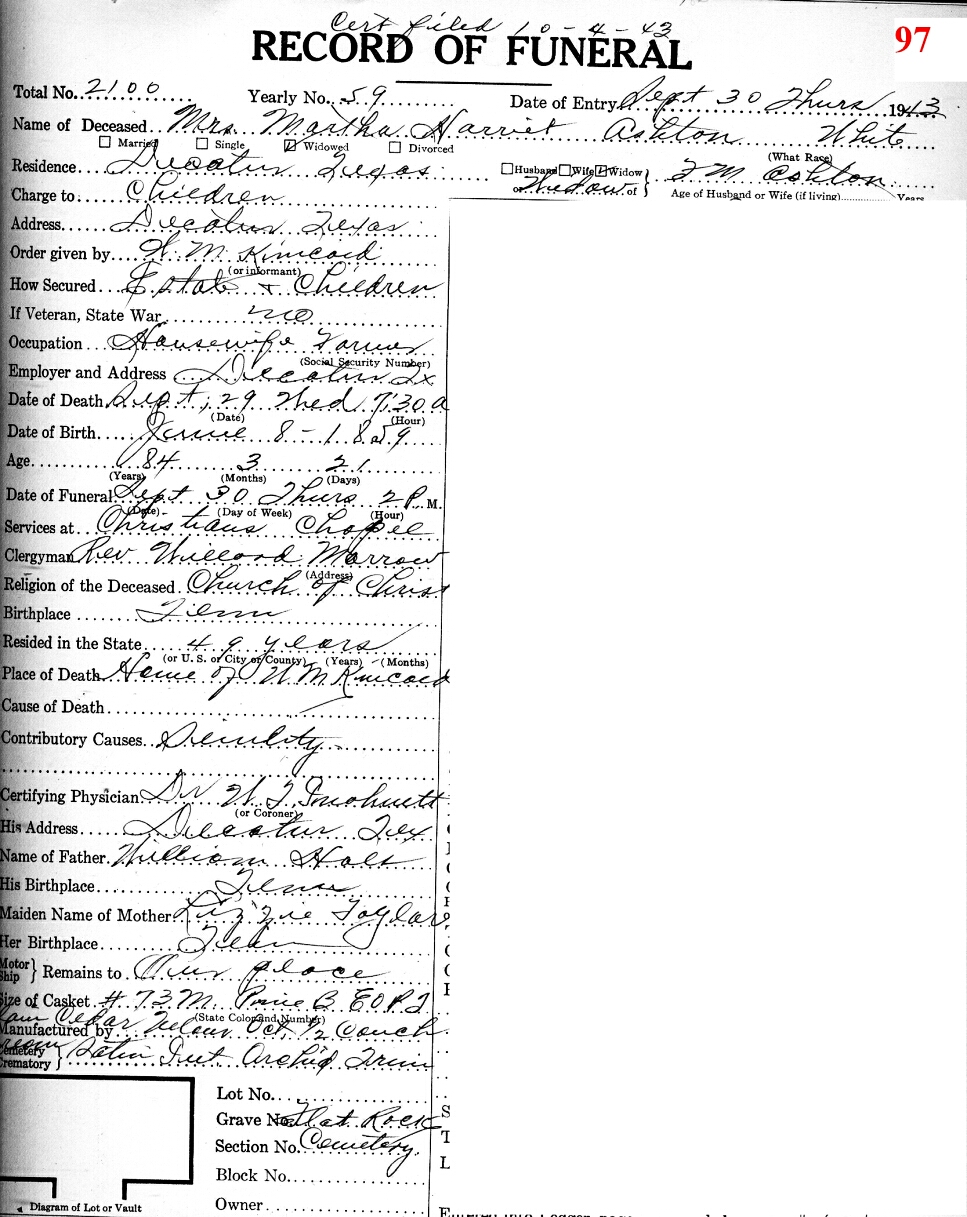 Cert filed 10-4-43
97
RECORD OF FUNERAL
Total No. 2100 Yearly No. 59 Date of Entry Sept 30 Thurs 1943
Name of Deceased Mrs. Martha Harriet Ashton White
Married Single Widowed Divorced (What Race)
Residence Decatur Texas Husband Wife Widow or Widow of J M Ashton
Charge to Children Age of Husband or Wife (if living) Years
Address Decatur Texas
Order given by W. M. Kincaid
(or informant)
How Secured Estate + Children
If Veteran, State War no
Occupation Housewife Farmer
(Social Security Number)
Employer and Address Decatur Tx
Date of Death Sept, 29 Wed 7:30 a
(Date) (Hour)
Date of Birth June 8-1859
Age 84 3 21
(Years) (Months) (Days)
Date of Funeral Sept 30 Thurs 2 P. M.
(Date) (Day of Week) (Hour)
Services at Christians Chapel
Clergyman Rev Willard Morrow
(Address)
Religion of the Deceased Church of Christ
Birthplace Tenn
Resided in the State 49 years
(or U. S. or City or County) (Years) (Months)
Place of Death Home of W M Kincaid
Cause of Death
Contributory Causes Senility
Certifying Physician Dr W. T. Inabnett
(or Coroner)
His Address Decatur Tex
Name of Father William Holt
His Birthplace Tenn
Maiden Name of Mother Lizzie Taylor
Her Birthplace Tenn
Motor Ship } Remains to Our place
Size of Casket # 73 M. B E O P T
(State Color and Number)
Cedar Oct. 1/2 Couch
Manufactured by
Cemetery Crematory } Satin Orchid Trim
Lot No.
Grave No. Flat Rock
Section No. Cemetery.
Block No.
Owner
Diagram of Lot or Vault